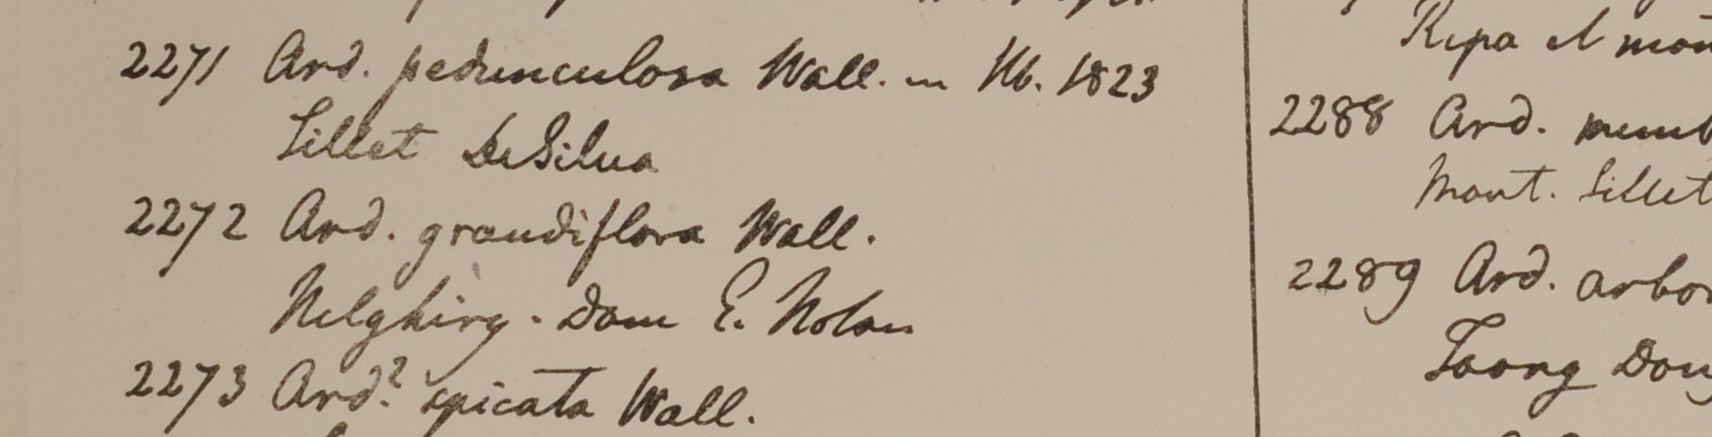 2271 Ard. pedunculosa Wall. in Hb. 1823
Sillet DeSilva
2272 Ard. grandiflora Wall.
Nelghirry. Dom E. Nolan
2273 Ard.? spicata Wall.
Ripa et mon
2288 Ard. memb
Mont. Sillet
2289 Ard. arbor
Taong Dou